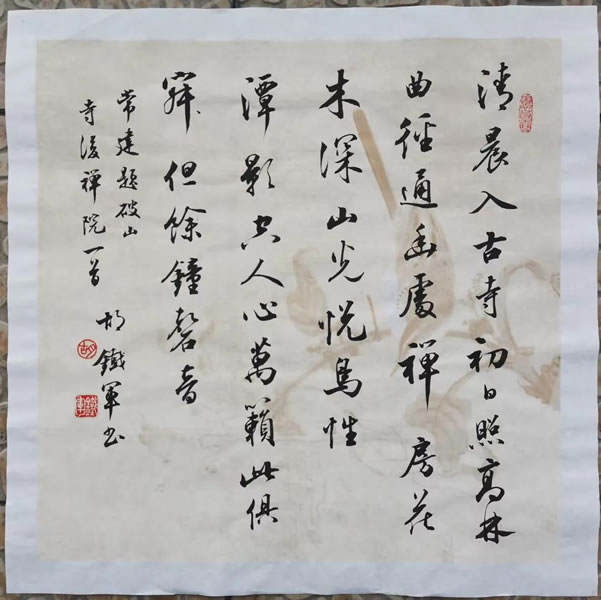 清晨入古寺初日照高林
曲徑通幽處禪房花
木深山光悅鳥性
潭影空人心萬籟此俱
寂但餘鐘磬音
常建題破山
寺後禪院一首
胡鐵軍书